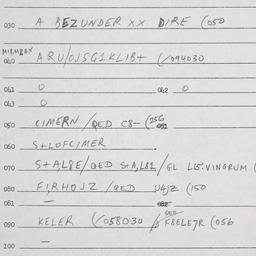 030 A BEZUNDER XX DIRE (050
040 ARU/OJSG1KLIB+ (/094030
041 0 042 0
043 0
050 CIMERN/QED C8-(256
060 S+LOFCIMER
070 S+A,L8E/QED S+A,L81/GL L15.VINGRUM (
080 F,RHOJZ/QED U4JZ (150
081 — 082
090 KELER (/058030 F8ELE7R (056
100 —